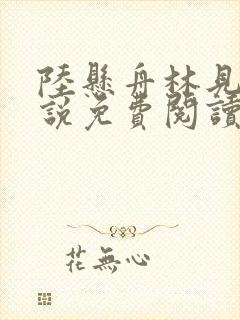 陸懸舟林見
說免費閱讀
花無心